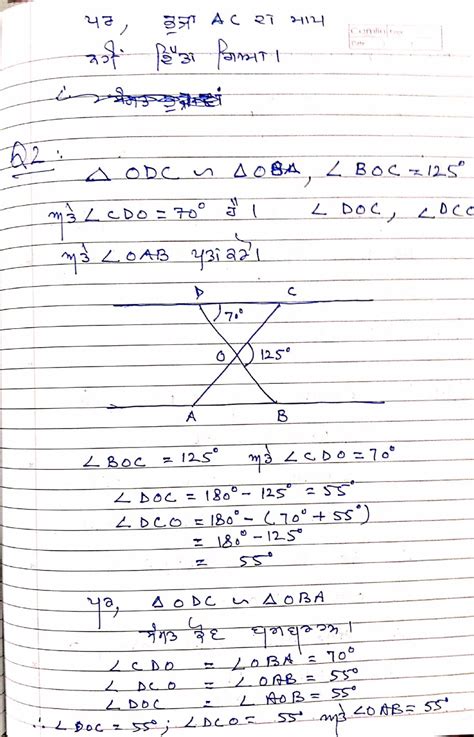 ਪਰ, ਭੁਜਾ AC ਦਾ ਮਾਪ
ਨਹੀਂ ਦਿੱਤਾ ਗਿਆ।
Q2:
△ ODC ∽ △OBA, ∠ BOC = 125°
ਅਤੇ ∠CDO = 70° ਹੈ। ∠ DOC, ∠ DCO
ਅਤੇ ∠OAB ਪਤਾ ਕਰੋ।
D C
70°
O 125°
A B
∠BOC = 125° ਅਤੇ ∠CDO = 70°
∠ DOC = 180° - 125° = 55°
∠ DCO = 180° - (70° + 55°)
= 180° - 125°
= 55°
ਪਰ, △ ODC ∽ △ OBA
ਸੰਗਤ ਕੋਣ ਬਰਾਬਰ ਹਨ।
∠ CDO = ∠OBA = 70°
∠ DCO = ∠ OAB = 55°
∠DOC = ∠ AOB = 55°
∴ ∠DOC = 55°; ∠DCO = 55° ਅਤੇ ∠OAB = 55°